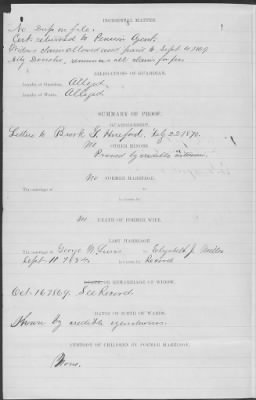 INCIDENTAL MATTER.
No Disp. on file.
Cert. returned to Pension Agent
Widows claim allowed and paid to Sept 14 1869.
Atty Donohu,
ALLEGATIONS OF GUARDIAN.
Loyalty of Guardian, Alleged.
Loyalty of Wards, Alleged
SUMMARY OF PROOF.
GUARDIANSHIP.
Letters to Brook T. Hereford, July 22 1870.
OTHER MINORS.
No
Proved by credible witnesses.
No FORMER MARRIAGE.
The marriage of to
is shown by
No DEATH OF FORMER WIFE.
LAST MARRIAGE
The marriage of George W. Lewis to Elizabeth J. Miller
Sept. 11 is shown by Record
OR REMARRIAGE OF WIDOW.
Oct. 16 1869. See Record
DATES OF BIRTH OF WARDS.
Shown by credible eyewitnesses.
CUSTODY OF CHILDREN BY FORMER MARRIAGE.
None.